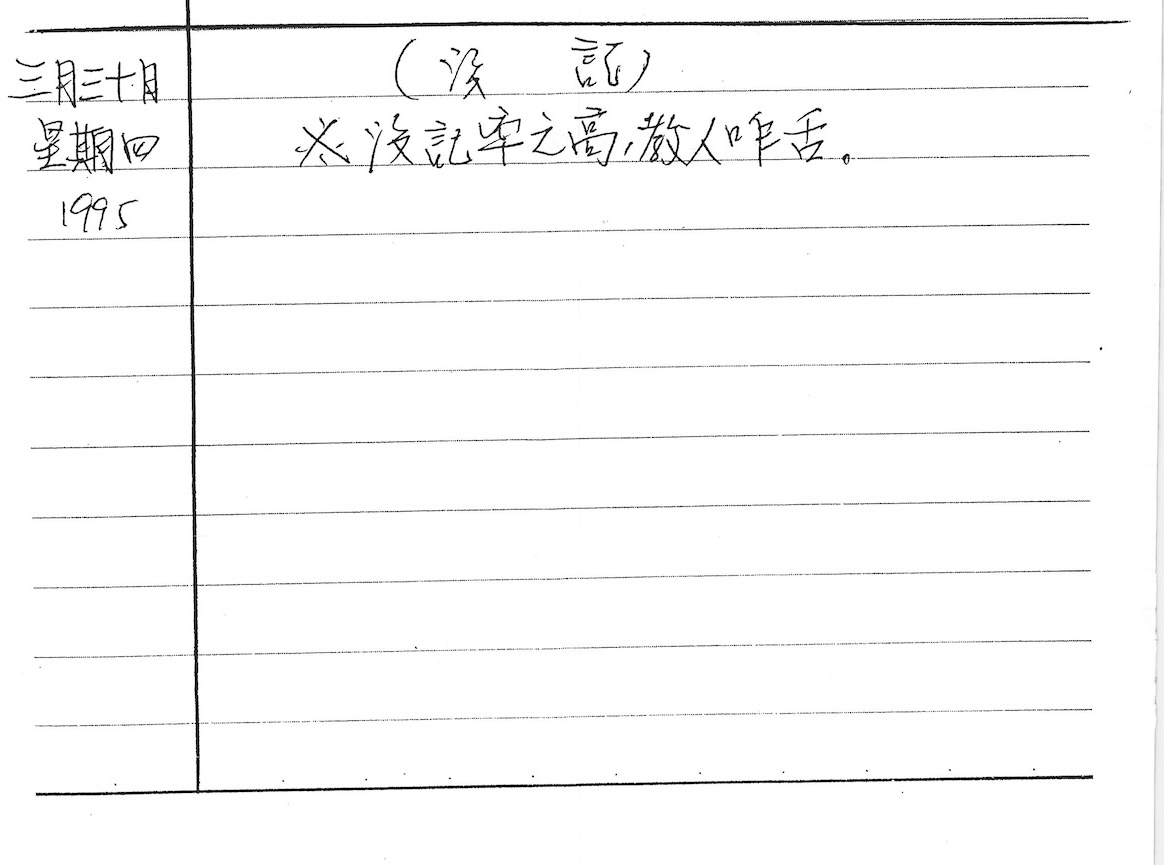 三月三十日
星期四
1995
(沒 記)
※沒記率之高,教人咋舌。